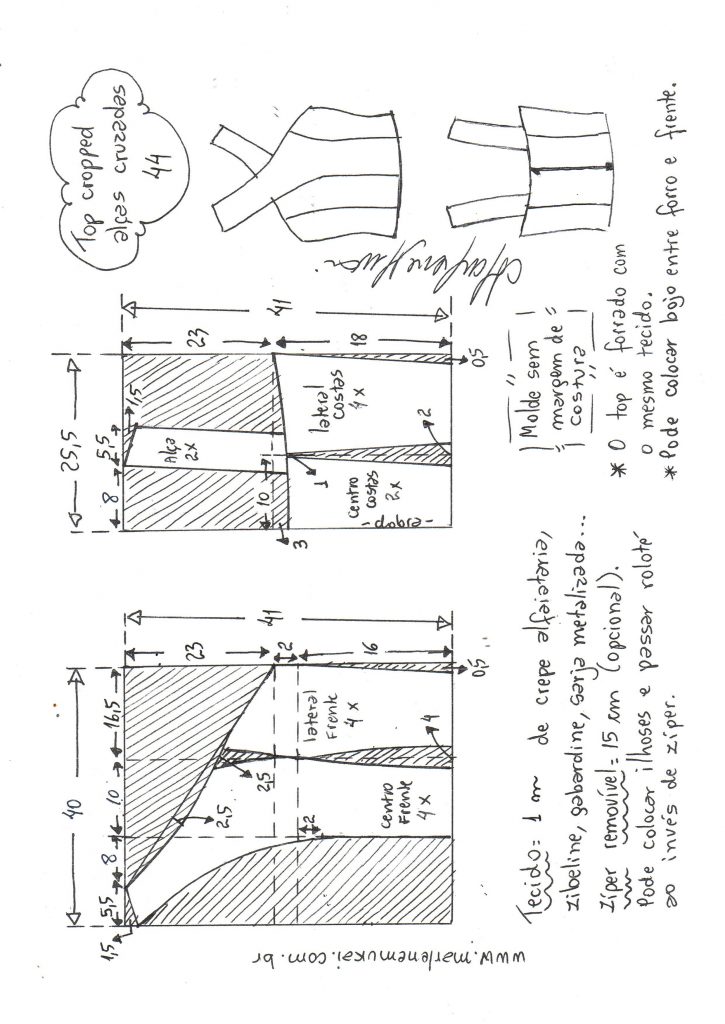 Top cropped
alças cruzadas
44
40
5,5
8
10
16,5
1,5
2,5
2,5
23
2
16
41
2
centro
Frente
4 x
lateral
Frente
4 x
4
0,5
25,5
8
5,5
1,5
Alça
2x
23
18
41
10
3
1
centro
costas
2x
-dobra-
lateral
costas
4 x
2
0,5
Molde sem
margem de
costura
* O top é forrado com
o mesmo tecido.
* Pode colocar bojo entre forro e frente.
Tecido= 1 m de crepe alfaiataria,
zibeline, gabardine, sarja metalizada...
Zíper removível= 15 cm (opcional).
Pode colocar ilhoses e passar roloté
ao invés de zíper.
www.marlenemukai.com.br